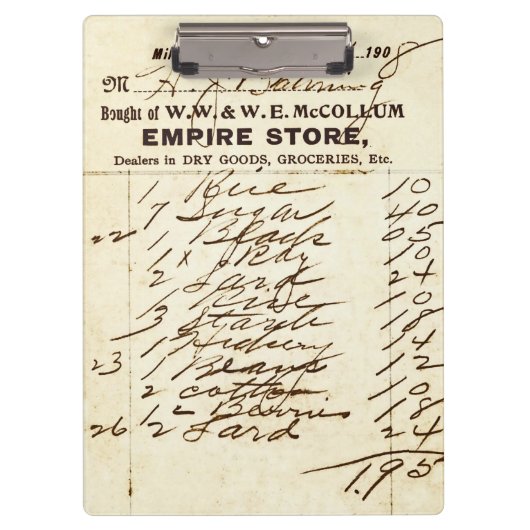 Mil 1908
M H. J. Downing
Bought of W. W. & W. E. McCOLLUM
EMPIRE STORE,
Dealers in DRY GOODS, GROCERIES, Etc.
1 Rice 10
7 Sugar 40
22 1 Black 05
1 x 10
2 Lard 24
1 Rice 10
3 Starch 18
1 14
23 1 Beans 12
2 cotton 10
1 2 Berries 18
26 2 Lard 24
1.95